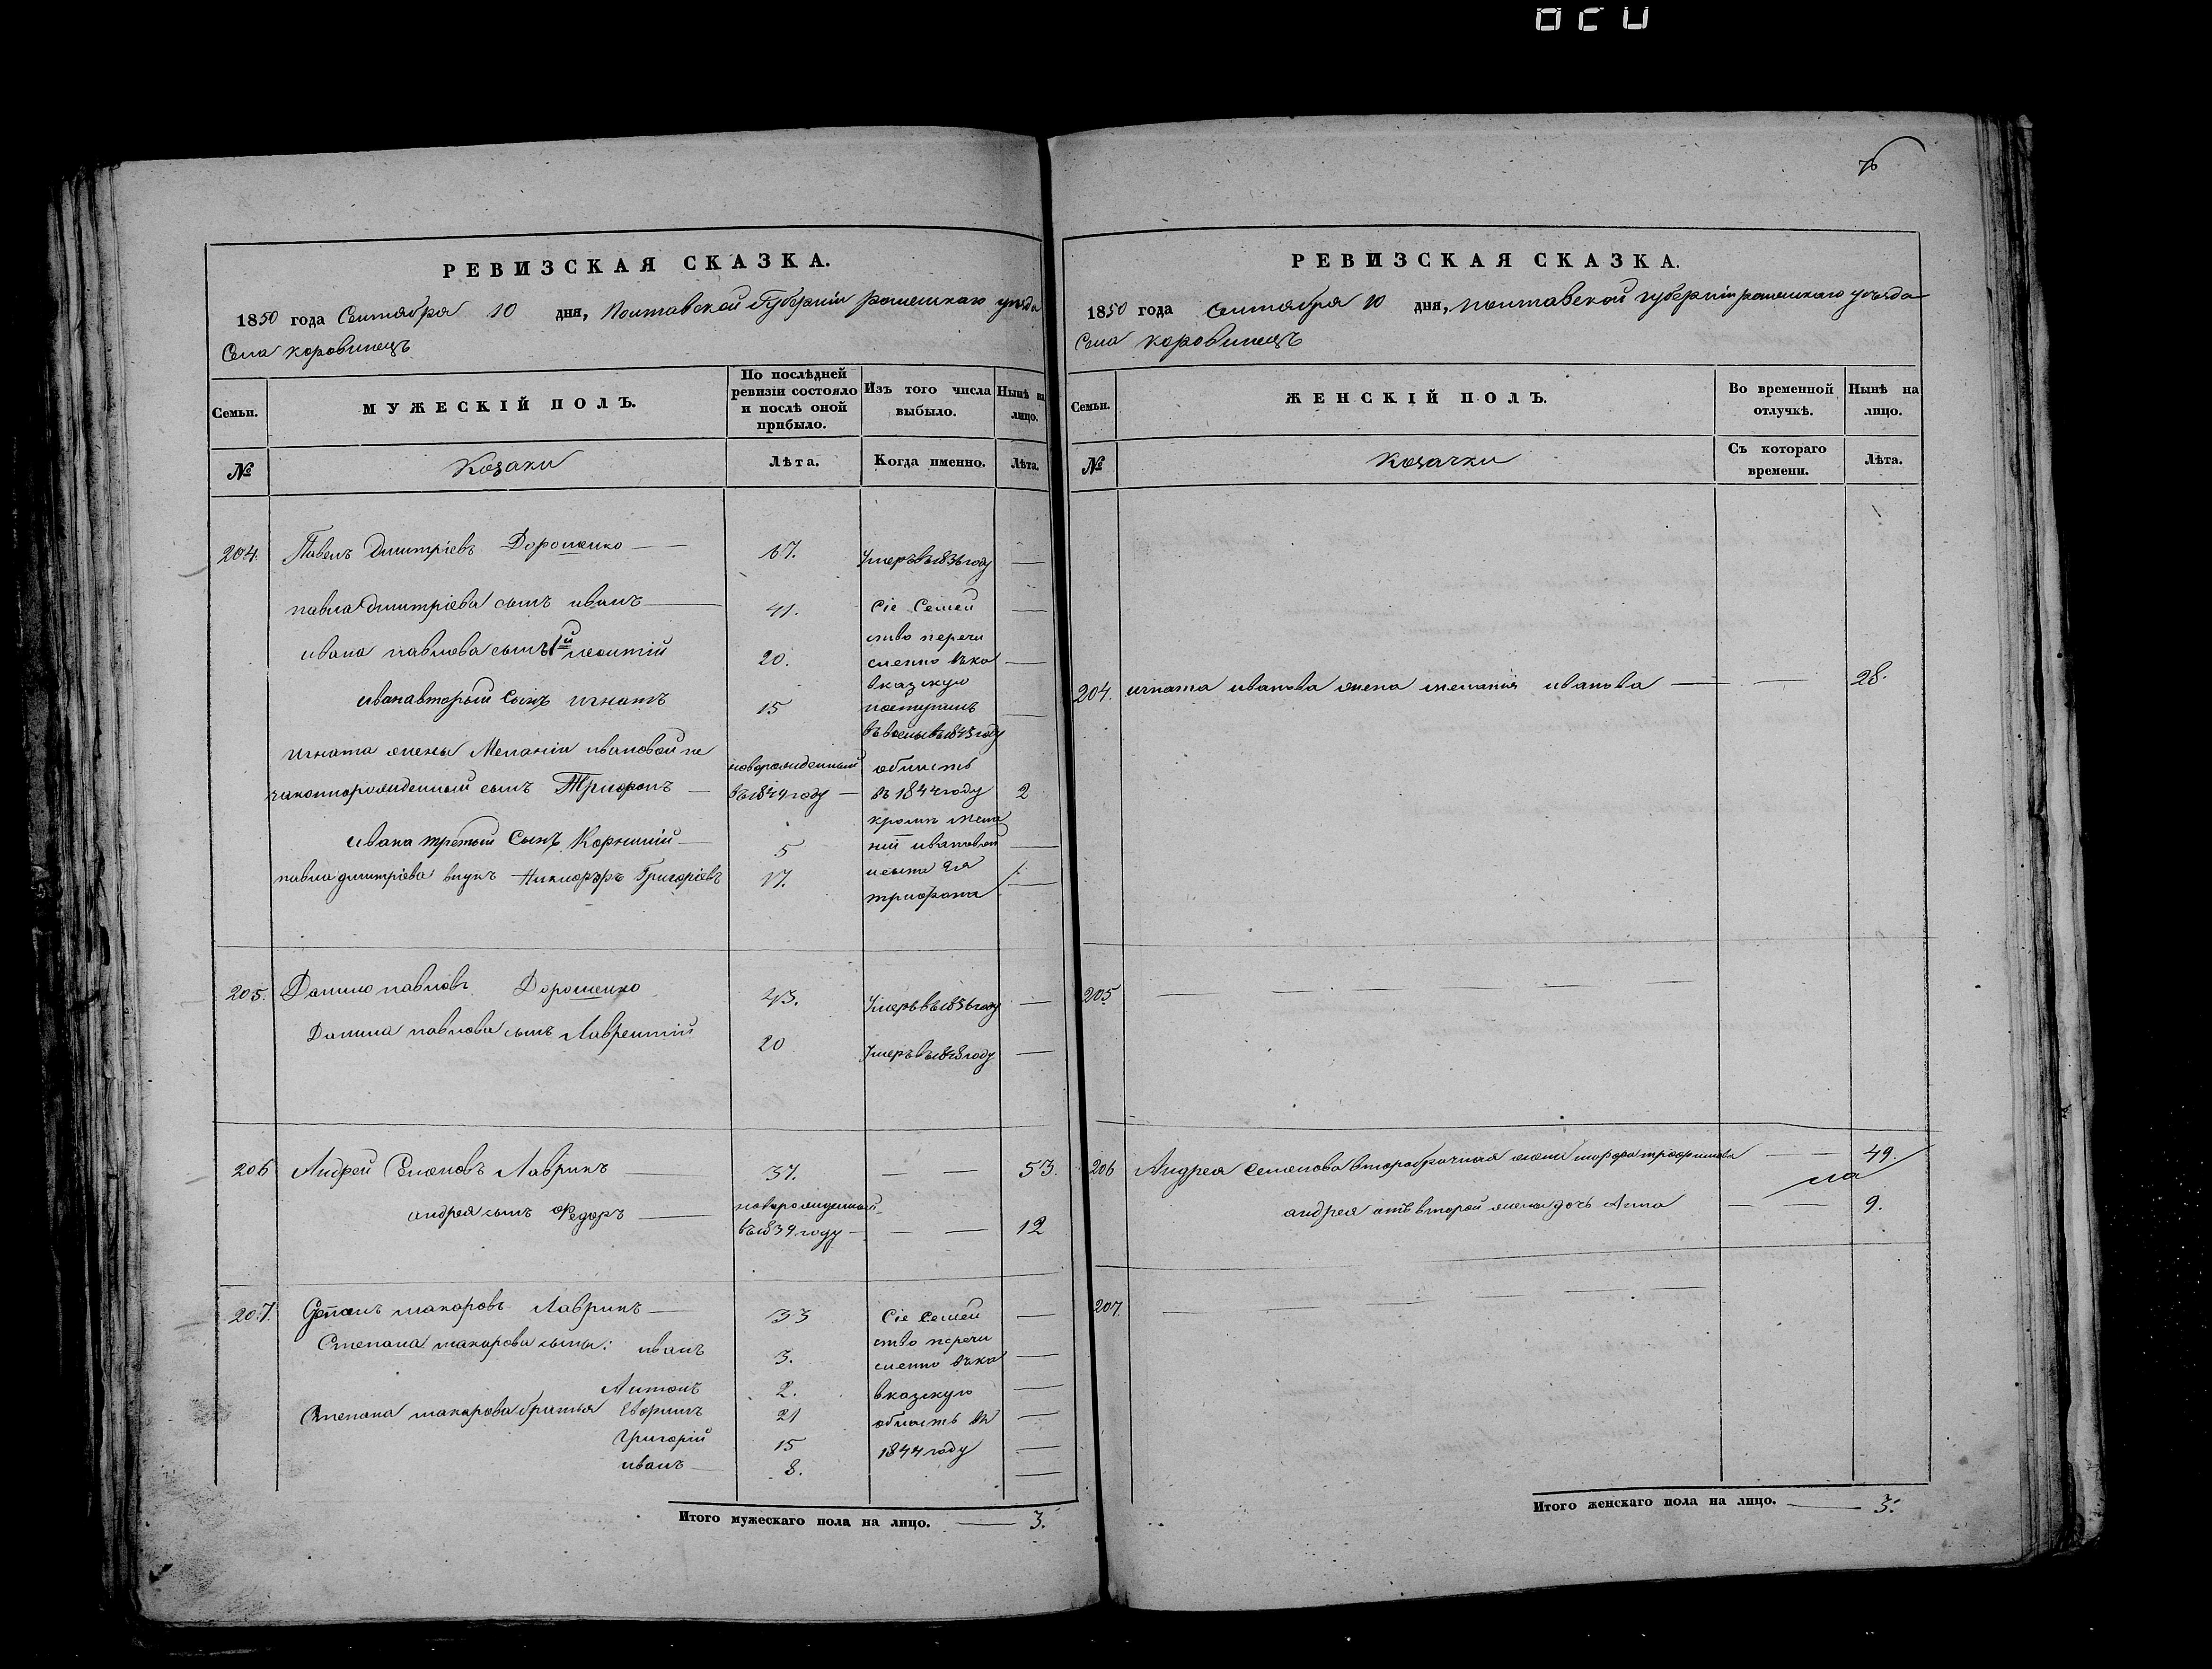 76
РЕВИЗСКАЯ СКАЗКА.
1850 года Сентября 10 дня, Полтавской Губерніи роменскаго уезда
Села коровинецъ
Семьи.
МУЖЕСКІЙ ПОЛЪ.
По послѣдней ревизіи состояло и послѣ оной прибыло.
Изъ того числа выбыло.
Нынѣ на лицо.
№
Козаки
Лѣта.
Когда именно.
Лѣта.
204. Павелъ Дмитріевъ Дорошенко — 67. Умеръ въ 1836 году —
павла Дмитріева сынъ иванъ — 41. Сіе Семей —
ивана павлова сынъ 1й леонтій 20. ство перечи
слено въ ка —
ивана вторый Сынъ игнатъ 15 вказкую
поступилъ —
игната жены Меланіи ивановой не
законнорожденный сынъ Трифонъ — новорожденный въ 1849 году — область
въ 1844 году 2
ивана третый Сынъ Корнилій — 5 кроме мела
ніи ивановой —
павла дмитріева внукъ Никифоръ Григоріевъ 17. исына Ея
трифона —
205. Данило павловъ Дорошенко 43. Умеръ въ 1836 году —
Данила павлова сынъ Лаврентій 20 Умеръ въ 1848 году —
206 Андрей Семеновъ Лаврикъ — 37. — — 53.
андрея сынъ Федоръ — новорожденный
въ 1839 году — — — 12
207. Степанъ макаровъ Лаврикъ — 33 Сіе Семей —
Степана макарова сыны: иванъ 3. ство перечи
слено въ ка —
Антонъ 2. вказкую —
Степана макарова братья Евфимъ 21 область въ —
Григорій 15 1844 году —
иванъ — 8. —
Итого мужескаго пола на лицо. — 3.
РЕВИЗСКАЯ СКАЗКА.
1850 года Сентября 10 дня, полтавской губерніи роменскаго уезда
Села коровинецъ
Семьи.
ЖЕНСКІЙ ПОЛЪ.
Во временной отлучкѣ.
Нынѣ на лицо.
№
Козачки
Съ котораго времени.
Лѣта.
204. игната иванова жена меланія иванова — — 28.
205 — — — — —
206 Андрея Семенова второбрачная жена трофимова — — 49.
андрея отъ второй жены дочь Анна — — 9.
207. — — — — —
Итого женскаго пола на лицо. — 3.